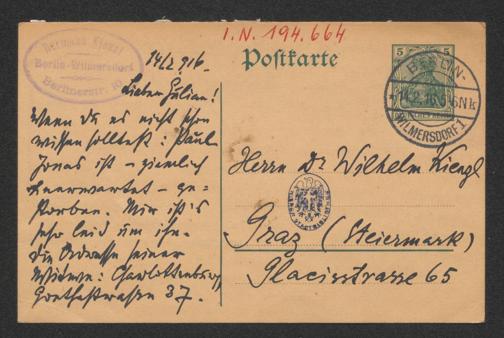 I.N. 194.664
Hermann Kienzl
Berlin-Wilmersdorf
Berlinerstr. 10
Postkarte
5 5
BERLIN-
14.2.16. 5-6 Nk
WILMERSDORF 1
14/2 916
Lieber Julian!
Wenn du es nicht schon
wissen solltest: Paul
Jonas ist – ziemlich
unerwartet – ge-
storben. Mir ist's
sehr leid um ihn.
die Adresse seiner
Witwe: Charlottenburg
Goethestraße 37.
Herrn Dr Wilhelm Kienzl
Graz (Steiermark)
Glacisstrasse 65